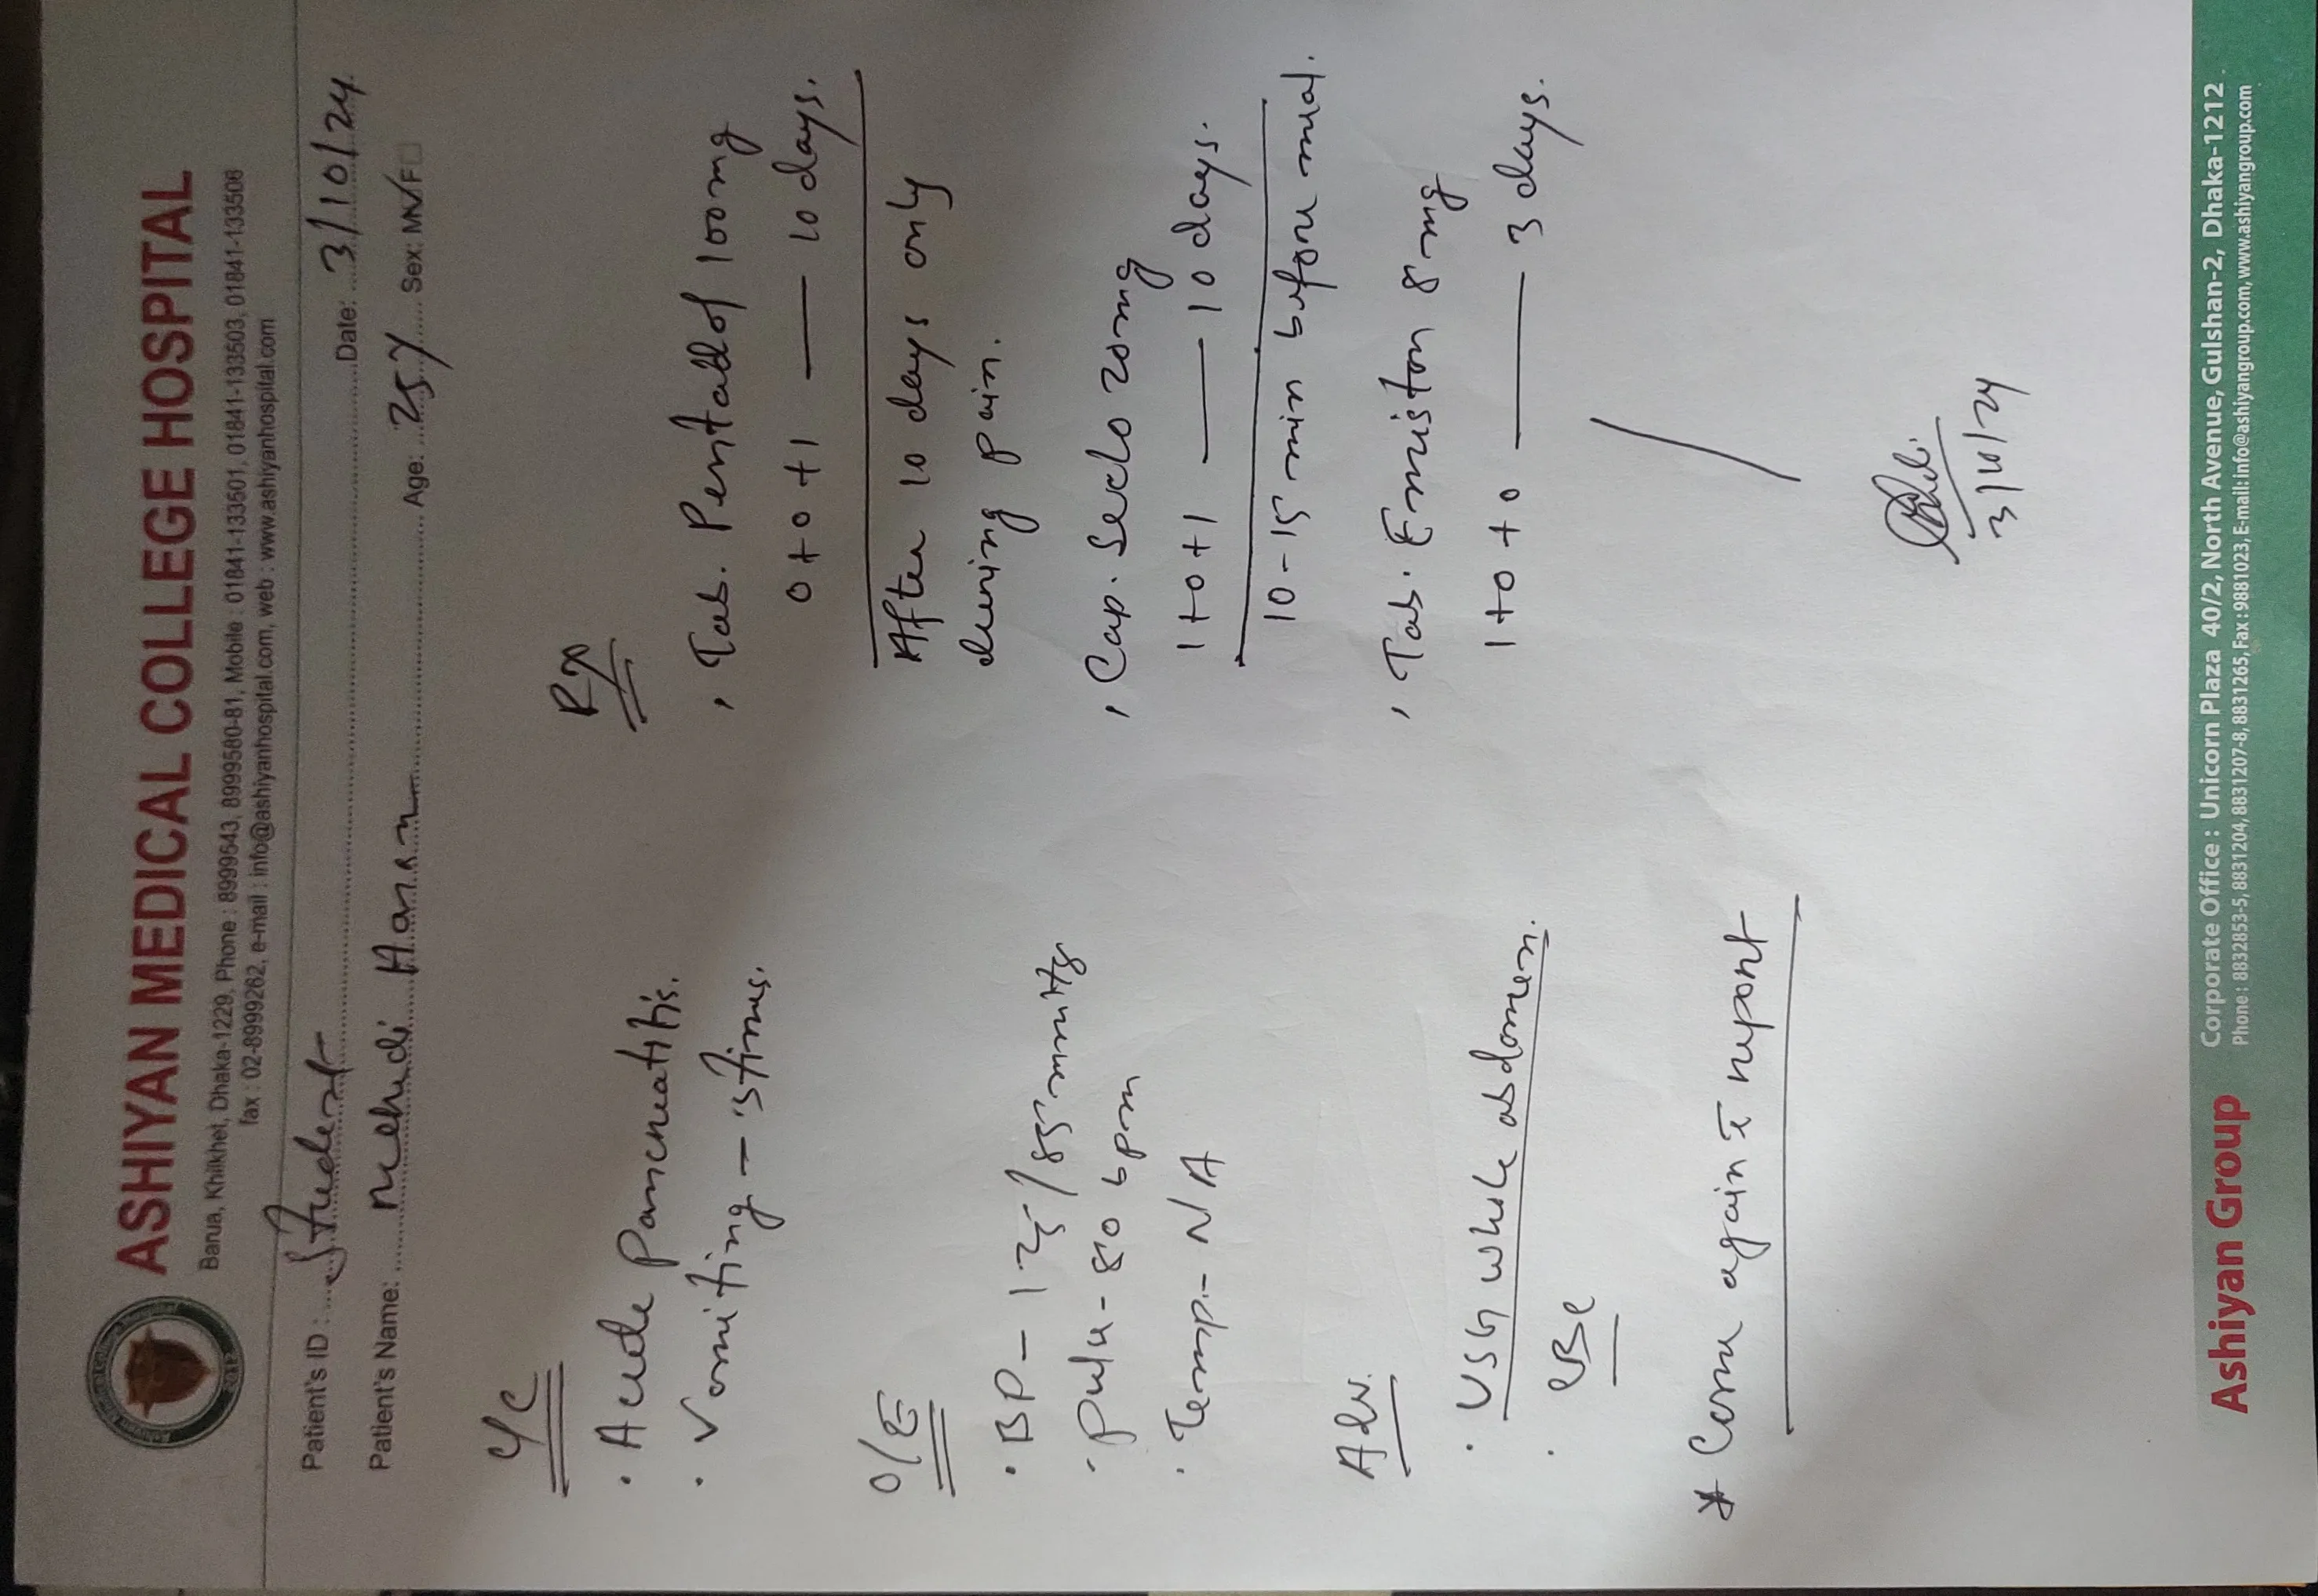 ASHIYAN MEDICAL COLLEGE HOSPITAL
Barua, Khilkhet, Dhaka-1229, Phone : 8999543, 8999580-81, Mobile : 01841-133501, 01841-133503, 01841-133506
fax : 02-8999262, e-mail : info@ashiyanhospital.com, web : www.ashiyanhospital.com
Patient's ID : Student Date: 3/10/24
Patient's Name: Mehedi Hasan Age: 25y Sex: M F
C/C
· Acute Pancreatitis.
· Vomiting - 5 times.
O/E
· BP - 125/85 mmHg
· Pulse - 80 bpm
· Temp - N/A
Adv.
· USG whole abdomen.
· CBC
* Come again c̄ report
Rx
, Tab. Pentadol 100mg
0+0+1 — 10 days.
After 10 days only
during pain.
, Cap. Seclo 20mg
1+0+1 — 10 days.
10-15 min before meal.
, Tab. Emistat 8mg
1+0+0 — 3 days.
3/10/24
Ashiyan Group
Corporate Office : Unicorn Plaza 40/2, North Avenue, Gulshan-2, Dhaka-1212
Phone : 8832853-5, 8831204, 8831207-8, 8831265, Fax : 9881023, E-mail: info@ashiyangroup.com, www.ashiyangroup.com